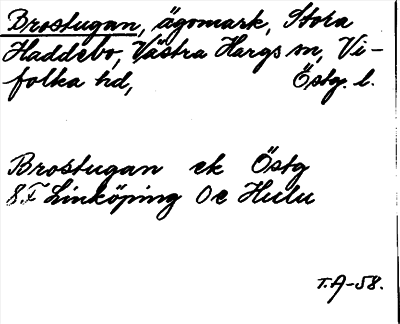 Brostugan, ägomark, Stora
Haddebo, Västra Hargs sn, Vi-
folka hd, Östg. l.
Brostugan ek Östg
8F Linköping 0e Hulu
T.A-58.